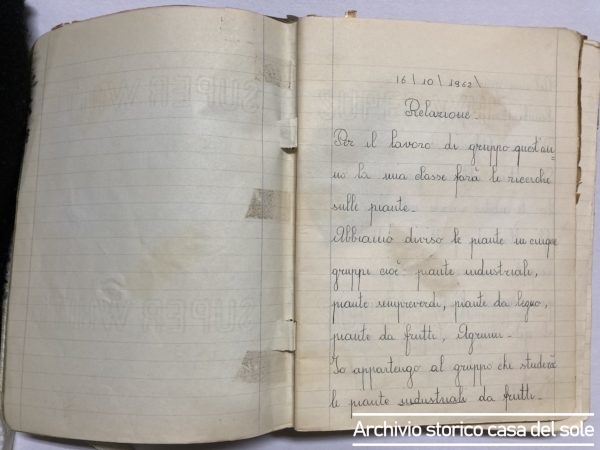 16/10/1962
Relazione
Per il lavoro di gruppo quest'an-
no la mia classe farà le ricerche
sulle piante.
Abbiamo diviso le piante in cinque
gruppi cioè piante industriali,
piante sempreverdi, piante da legno,
piante da frutti, Agrumi.
Io appartengo al gruppo che studierà
le piante industriali da frutti.
Archivio storico casa del sole